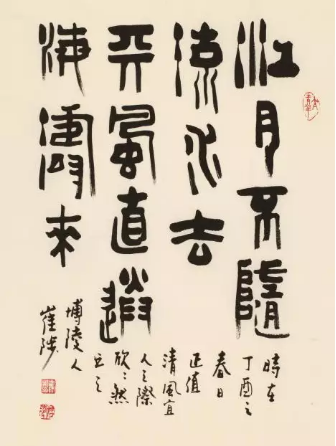 江月不隨
流水去
天風直送
海濤來
時在
丁酉之
春日
正值
清風宜
人之際
欣欣然
之
博陵人
崔陟